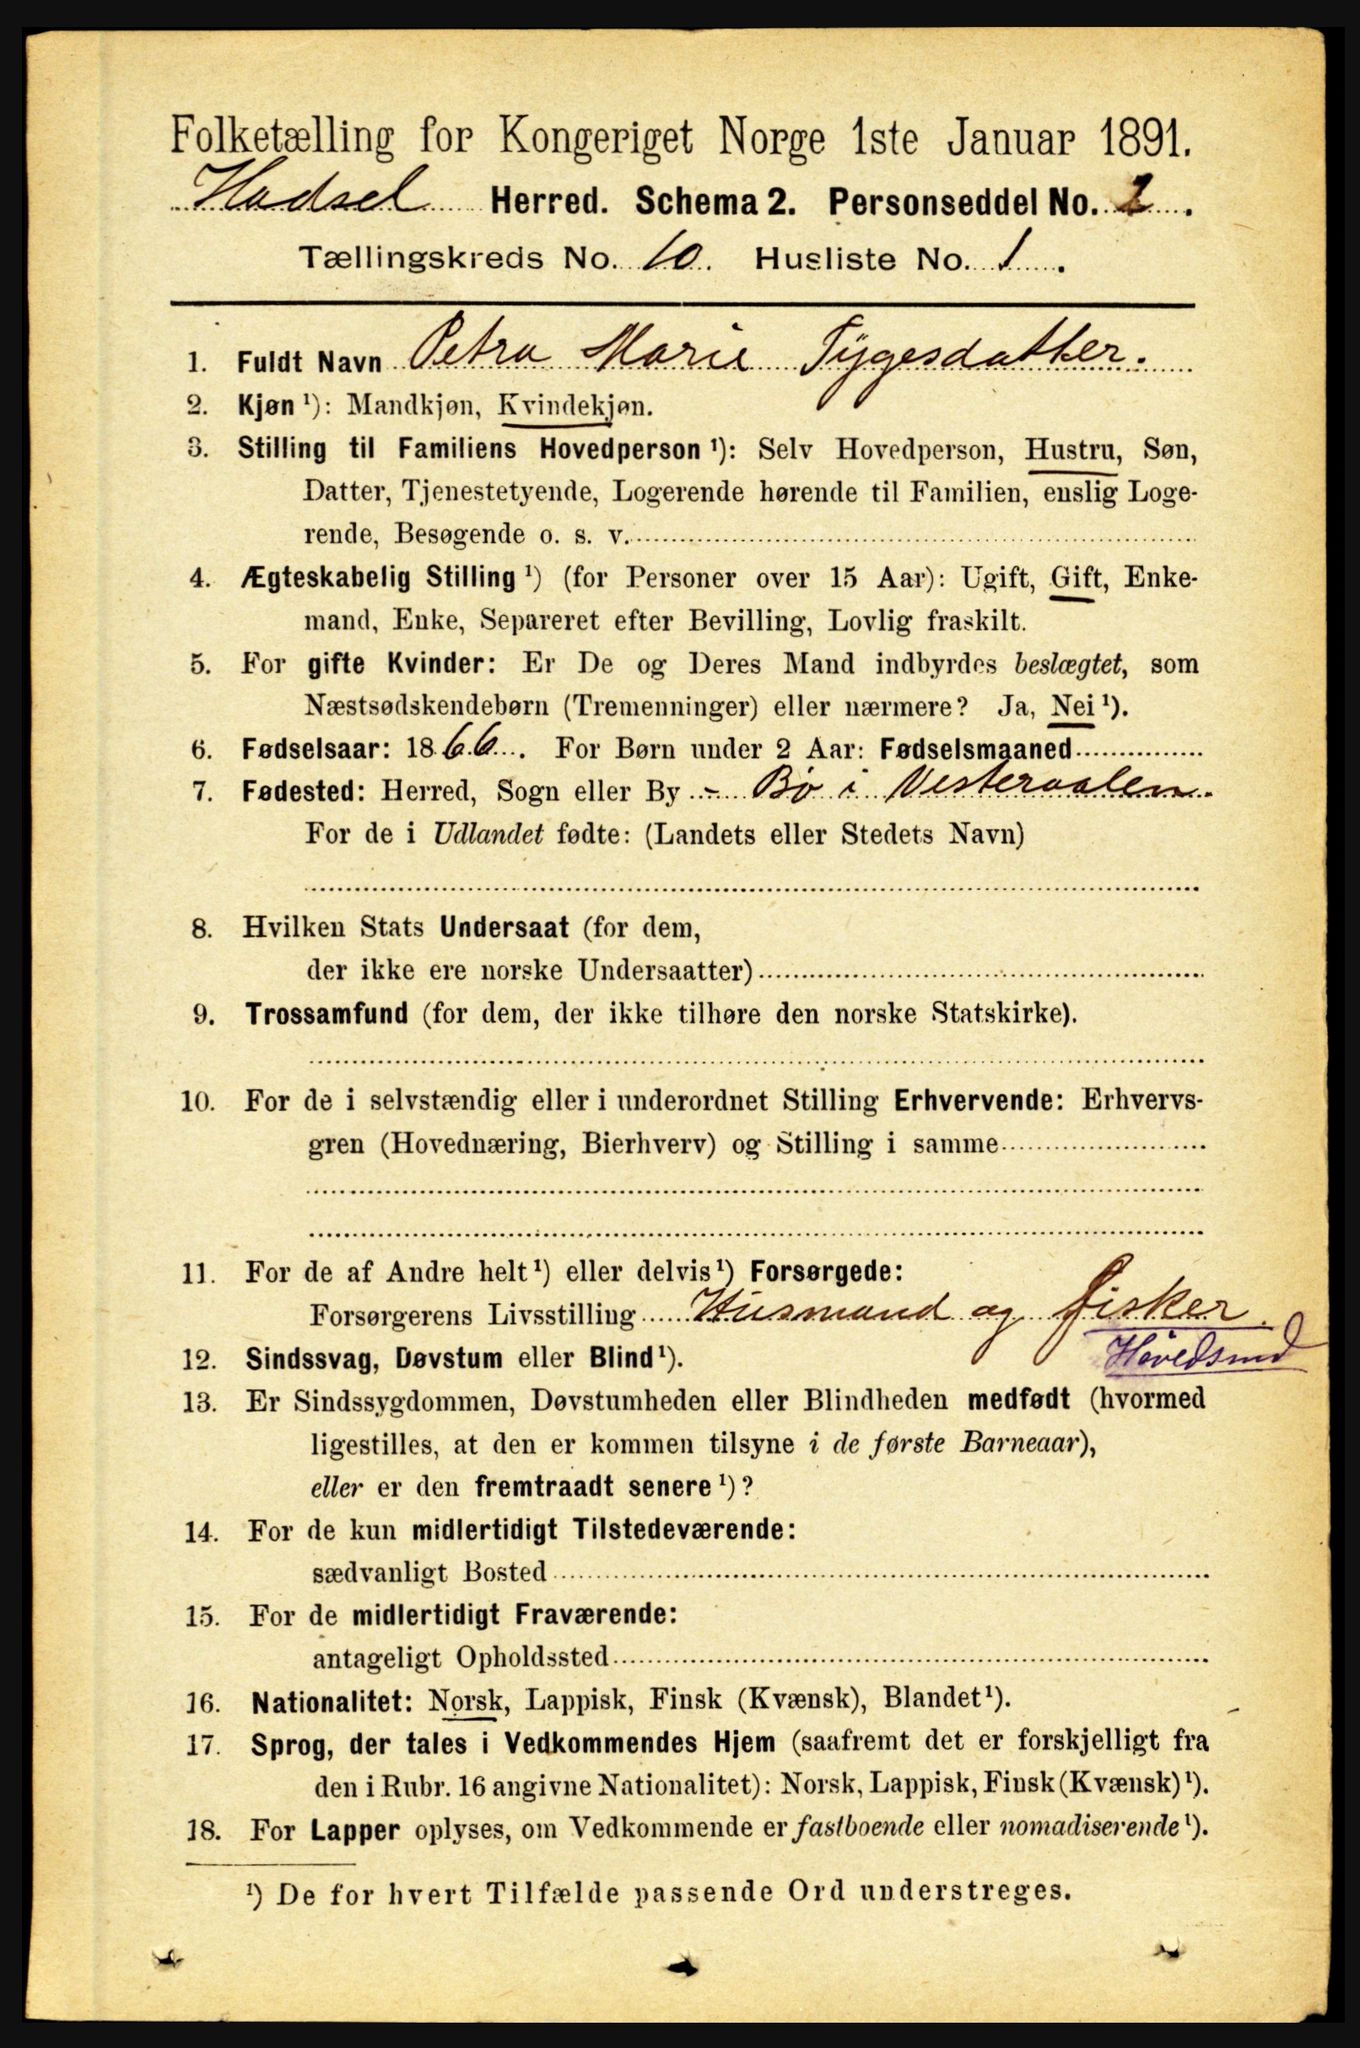 Folketælling for Kongeriget Norge 1ste Januar 1891.
Hadsel Herred. Schema 2. Personseddel No. 2.
Tællingskreds No. 10. Husliste No. 1.
1. Fuldt Navn Petra Marie Tygesdatter.
2. Kjøn ¹): Mandkjøn, Kvindekjøn.
3. Stilling til Familiens Hovedperson ¹): Selv Hovedperson, Hustru, Søn,
Datter, Tjenestetyende, Logerende hørende til Familien, enslig Loge-
rende, Besøgende o. s. v.
4. Ægteskabelig Stilling ¹) (for Personer over 15 Aar): Ugift, Gift, Enke-
mand, Enke, Separeret efter Bevilling, Lovlig fraskilt.
5. For gifte Kvinder: Er De og Deres Mand indbyrdes beslægtet, som
Næstsødskendebørn (Tremenninger) eller nærmere? Ja, Nei ¹).
6. Fødselsaar: 1866. For Børn under 2 Aar: Fødselsmaaned
7. Fødested: Herred, Sogn eller By - Bø i Vesteraalen.
For de i Udlandet fødte: (Landets eller Stedets Navn)
8. Hvilken Stats Undersaat (for dem,
der ikke ere norske Undersaatter)
9. Trossamfund (for dem, der ikke tilhøre den norske Statskirke).
10. For de i selvstændig eller i underordnet Stilling Erhvervende: Erhvervs-
gren (Hovednæring, Bierhverv) og Stilling i samme
11. For de af Andre helt ¹) eller delvis ¹) Forsørgede:
Forsørgerens Livsstilling Husmand og fisker.
12. Sindssvag, Døvstum eller Blind ¹).
13. Er Sindssygdommen, Døvstumheden eller Blindheden medfødt (hvormed
ligestilles, at den er kommen tilsyne i de første Barneaar),
eller er den fremtraadt senere ¹)?
14. For de kun midlertidigt Tilstedeværende:
sædvanligt Bosted
15. For de midlertidigt Fraværende:
antageligt Opholdssted
16. Nationalitet: Norsk, Lappisk, Finsk (Kvænsk), Blandet ¹).
17. Sprog, der tales i Vedkommendes Hjem (saafremt det er forskjelligt fra
den i Rubr. 16 angivne Nationalitet): Norsk, Lappisk, Finsk (Kvænsk) ¹).
18. For Lapper oplyses, om Vedkommende er fastboende eller nomadiserende ¹).
¹) De for hvert Tilfælde passende Ord understreges.